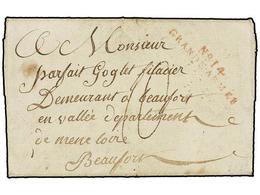 A Monsieur
parfait Goglet filacier
Demeurant a beaufort
en vallée département
de mene loire
Beaufort
No 14
GRANDE ARMEE